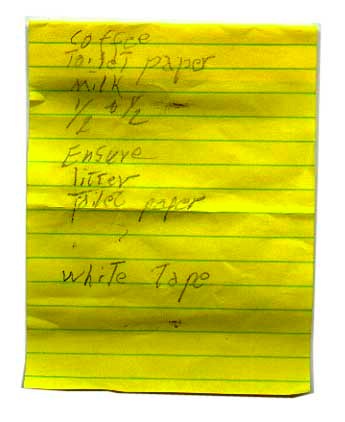 coffee
Toilet paper
milk
1/2 & 1/2
Ensure
litter
toilet paper
white Tape